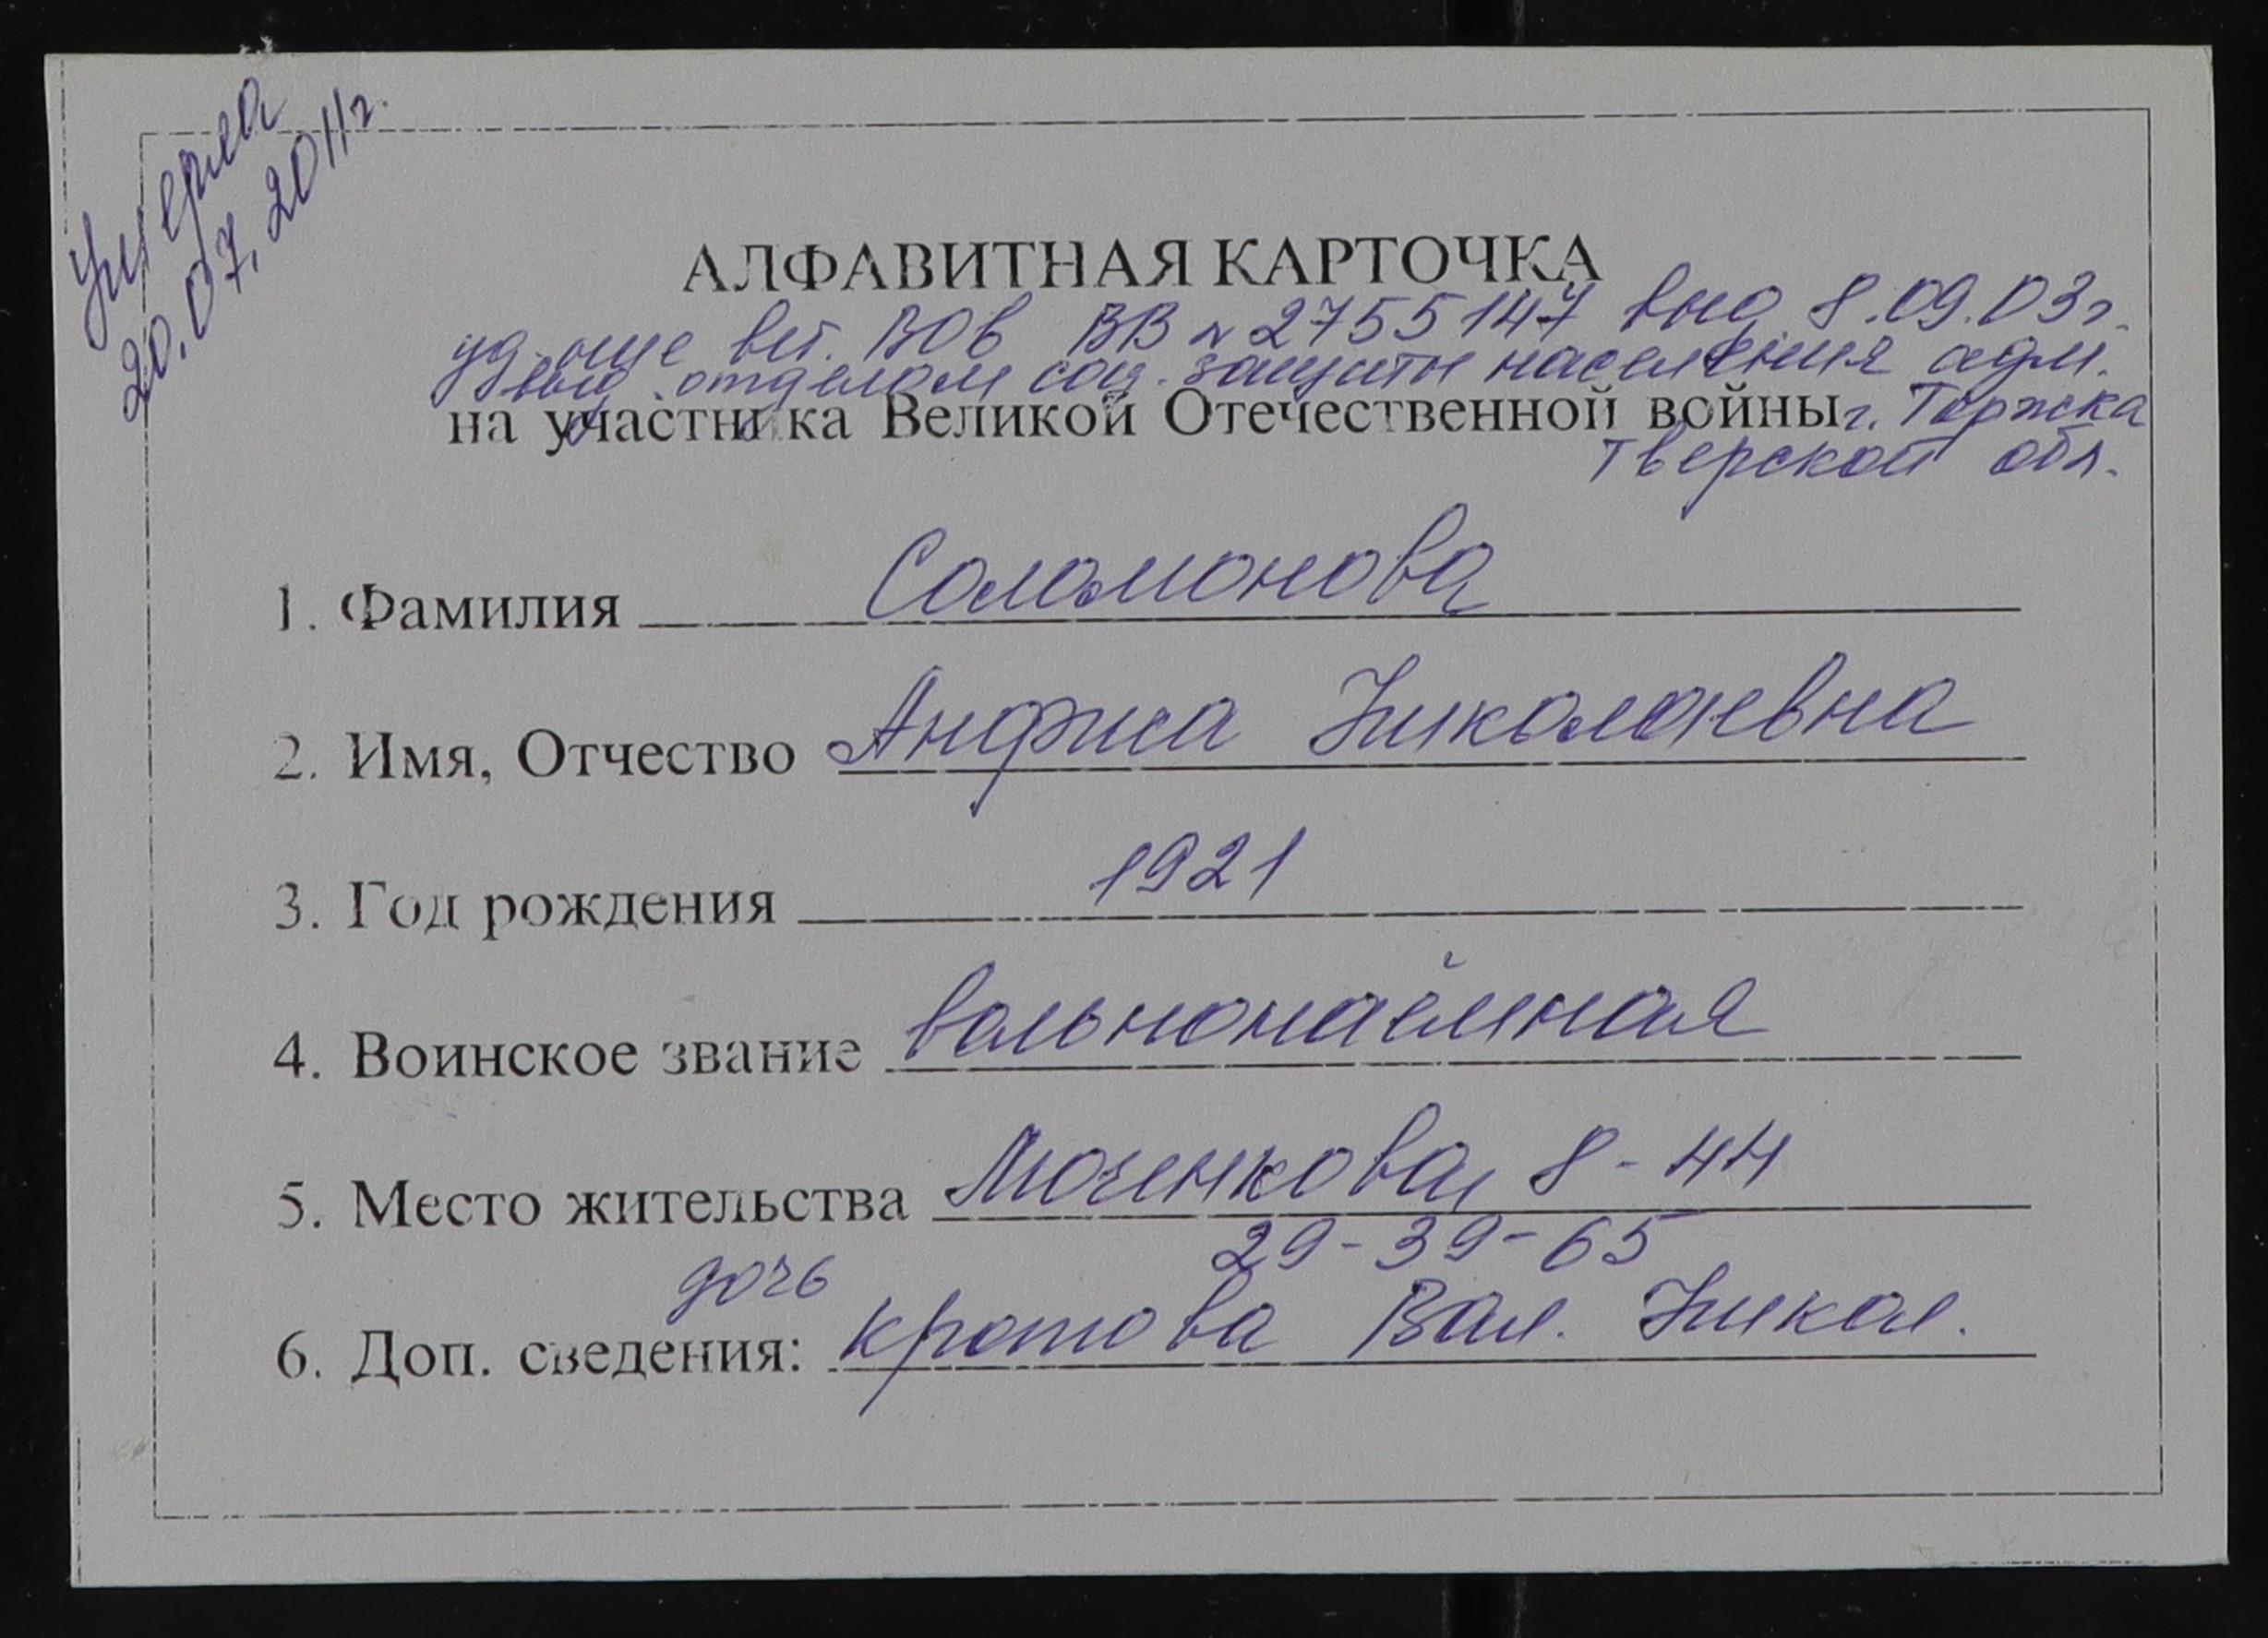 Умерла
20.07.2011г.
АЛФАВИТНАЯ КАРТОЧКА
уд-ние вет. ВОВ ВВ № 2755147 8.09.03г.
выд. отделом соц. защиты населения адм.
на участника Великой Отечественной войны г. Торжка
Тверской обл.
1. Фамилия Соломонова
2. Имя, Отчество Анфиса Николаевна
3. Год рождения 1921
4. Воинское звание вольнонаёмная
5. Место жительства 8-44
29-39-65
дочь
6. Доп. сведения: Кротова Вал. Никол.